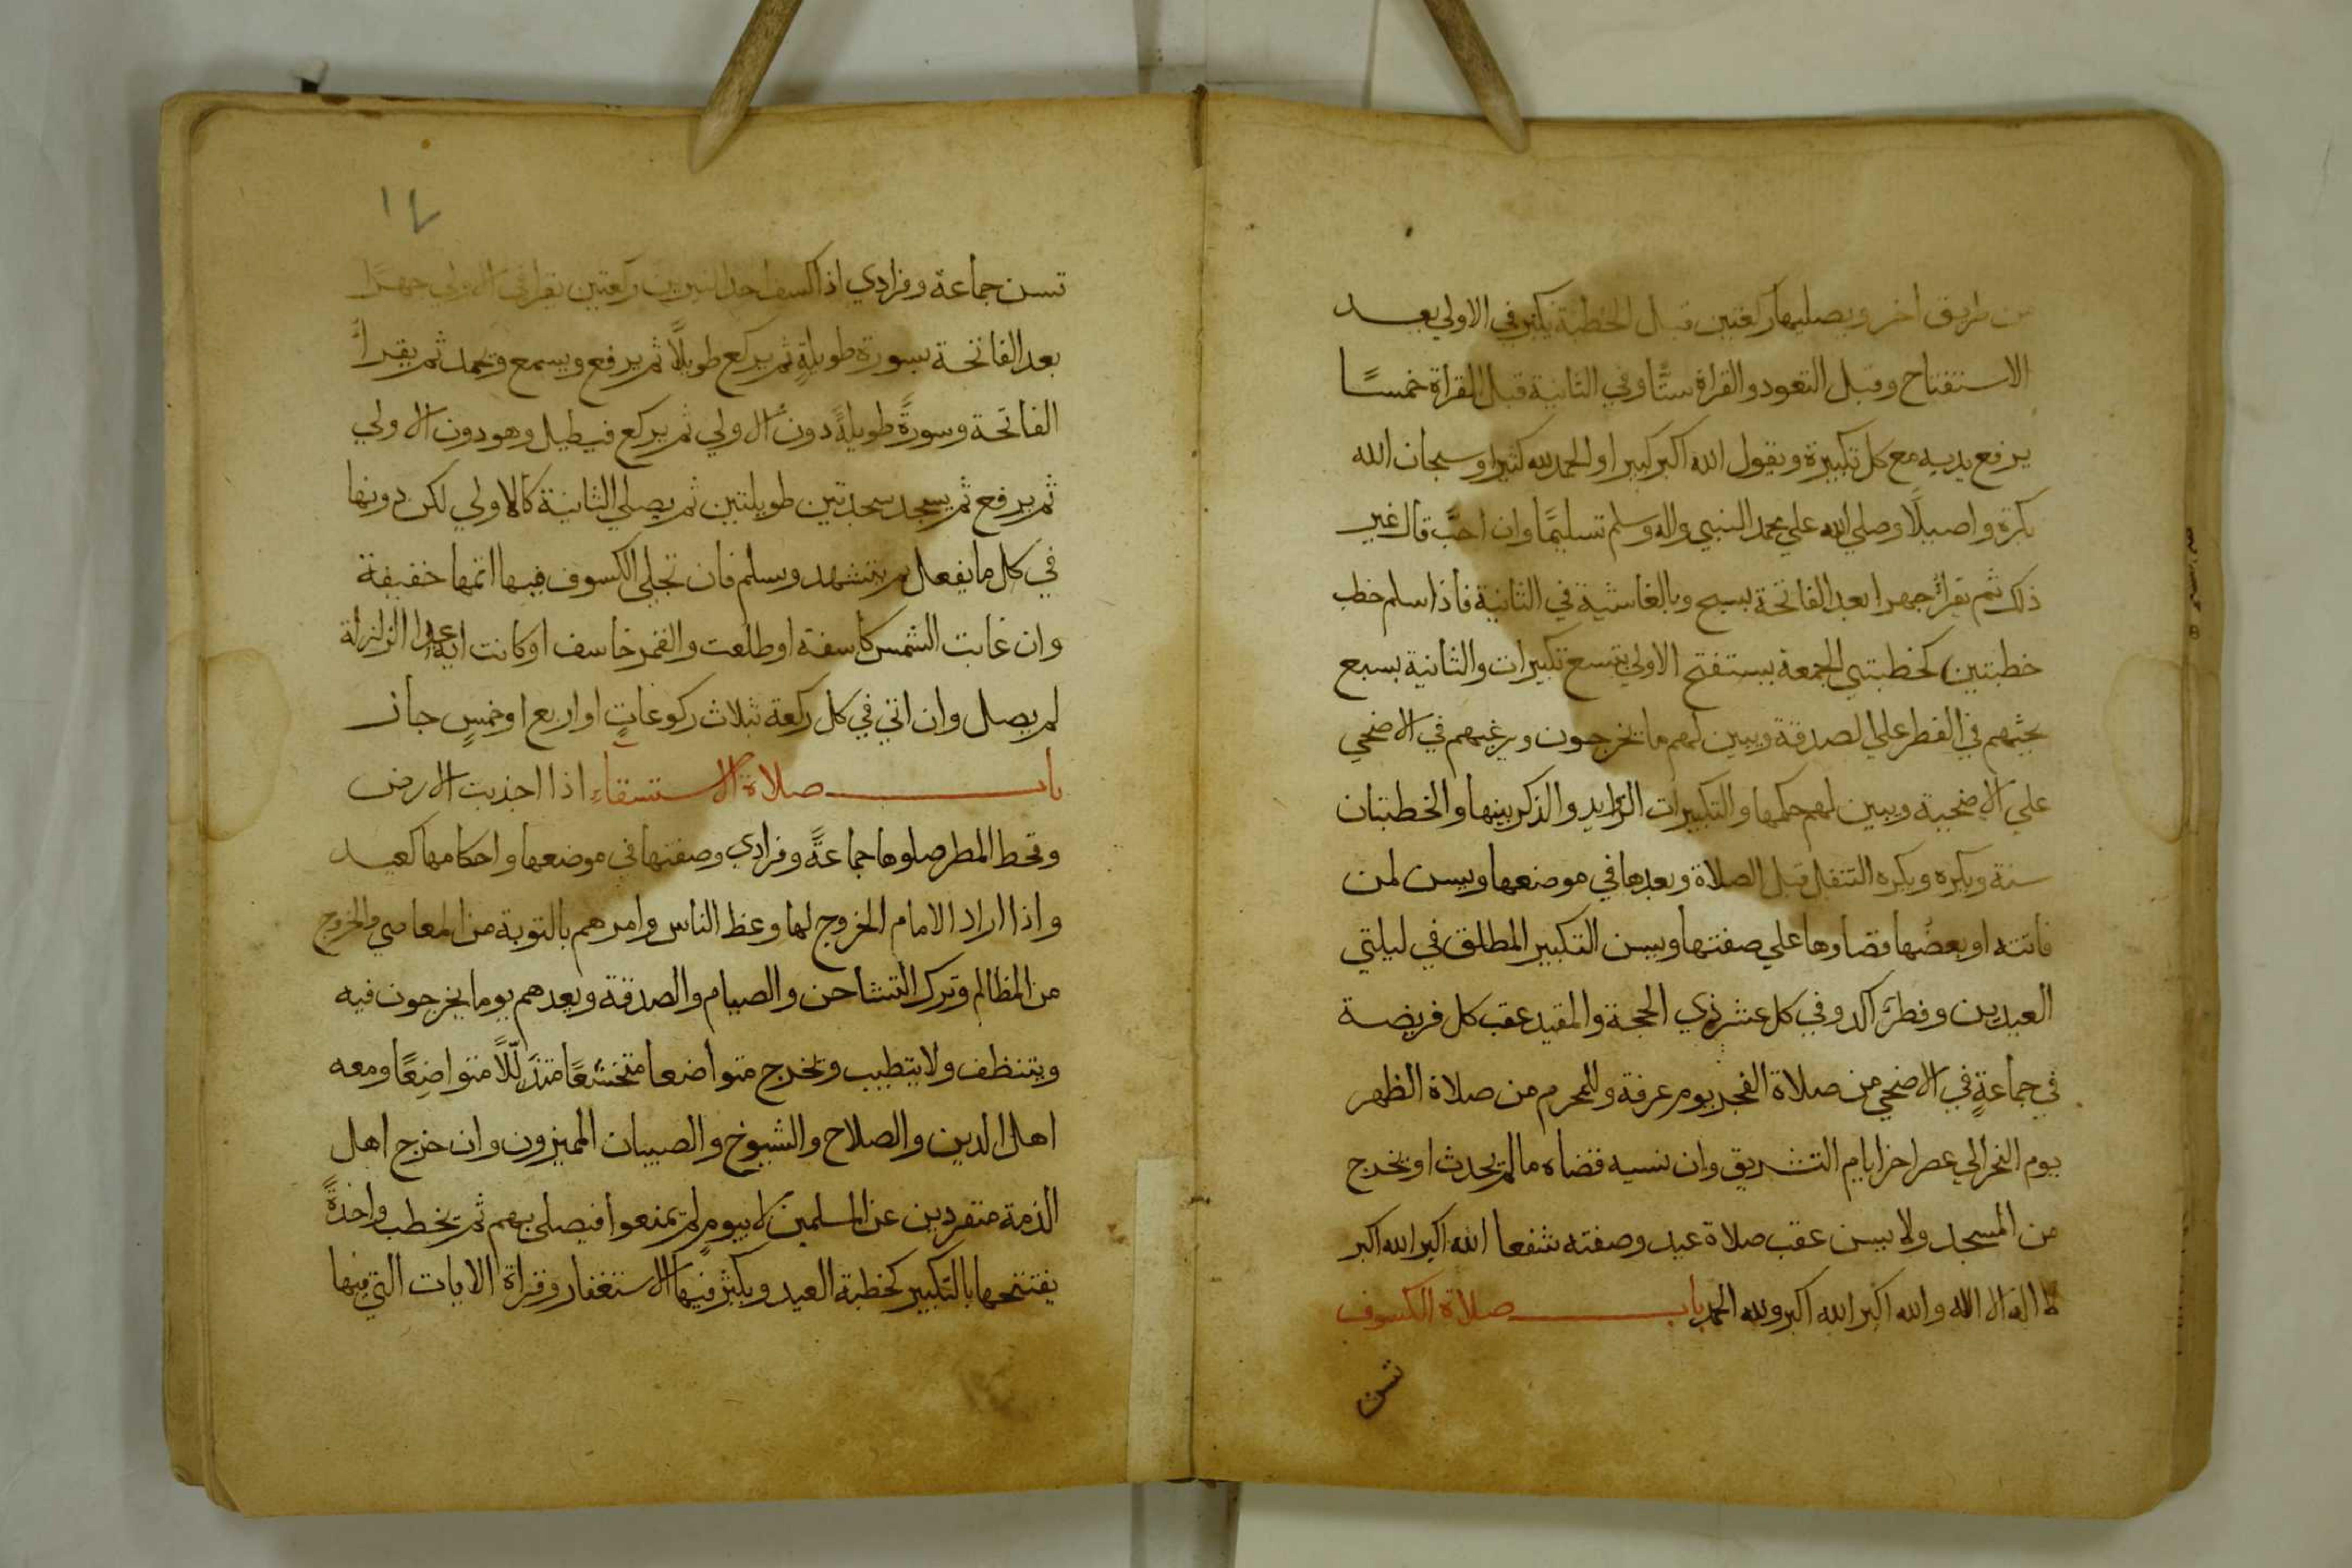 من طريق اخر ويصليها ركعتين قبل الخطبة يكبر في الاولي بعد
الاستفتاح وقبل التعوذ والقراة ستًّا وفي الثانية قبل القراة خمسًا
يرفع يديه مع كل تكبيرة ويقول الله اكبر كبيرا والحمد لله كثيرا وسبحان الله
بكرة واصيلًا وصلي الله علي محمد النبي واله وسلم تسليمًا وان احبَّ قال غير
ذلك ثم يقرأ جهرا بعد الفاتحة بسبح وبالغاشية في الثانية فاذا سلم خطب
خطبتين كخطبتي الجمعة يستفتح الاولي بتسع تكبيرات والثانية بسبع
يحثهم في الفطر علي الصدقة ويبين لهم ما يخرجون ويرغبهم في الاضحي
علي الاضحية ويبين لهم حكمها والتكبيرات الزوايد والذكر بينها والخطبتان
سنة ويكره ويكره التنفل قبل الصلاة وبعدها في موضعها ويسن لمن
فاتته او بعضها قضاوها علي صفتها ويسن التكبير المطلق في ليلتي
العيدين وفطر آكد وفي كل عشر ذي الحجة والمقيد عقب كل فريضة
في جماعةٍ في الاضحي من صلاة الفجر يوم عرفة وللمحرم من صلاة الظهر
يوم النحر الي عصر اخر ايام التشريق وان نسيه قضاه ما لم يحدث او يخرج
من المسجد ولا يسن عقب صلاة عيد وصفته شفعا الله اكبر الله اكبر
لا اله الا الله والله اكبر الله اكبر ولله الحمد باب صلاة الكسوف
تسن
١٧
تسن جماعة وفرادي اذا كسف احد النيرين ركعتين يقرا في الاولي جهرًا
بعد الفاتحة بسورة طويلةٍ ثم يركع طويلًا ثم يرفع ويسمع ويحمد ثم يقرأ
الفاتحة وسورةً طويلةً دون الاولي ثم يركع فيطيل وهو دون الاولي
ثم يرفع ثم يسجد سجدتين طويلتين ثم يصلي الثانية كالاولي لكن دونها
في كل ما يفعل ثم يتشهد ويسلم فان تجلي الكسوف فيها اتمها خفيفة
وان غابت الشمس كاسفة او طلعت والقمر خاسف او كانت اية عدا الزلزلة
لم يصل وان اتي في كل ركعة بثلاث ركوعاتٍ او اربع او خمسٍ جاز
باب صلاة الاستسقاء اذا اجدبت الارض
وقحط المطر صلوها جماعةً وفرادي وصفتها في موضعها واحكامها كعيد
واذا اراد الامام الخروج لها وعظ الناس وامرهم بالتوبة من المعاصي والخروج
من المظالم وترك التشاحن والصيام والصدقة ويعدهم يوما يخرجون فيه
ويتنظف ولا يتطيب ويخرج متواضعا متخشعًا متذللًا متواضِعًا ومعه
اهل الدين والصلاح والشيوخ والصبيان المميزون وان خرج اهل
الذمة منفردين عن المسلمين لا بيومٍ لم يمنعوا فيصلي بهم ثم يخطب واحدةً
يفتتحها بالتكبير كخطبة العيد ويكثر فيها الاستغفار وقراة الايات التي فيها